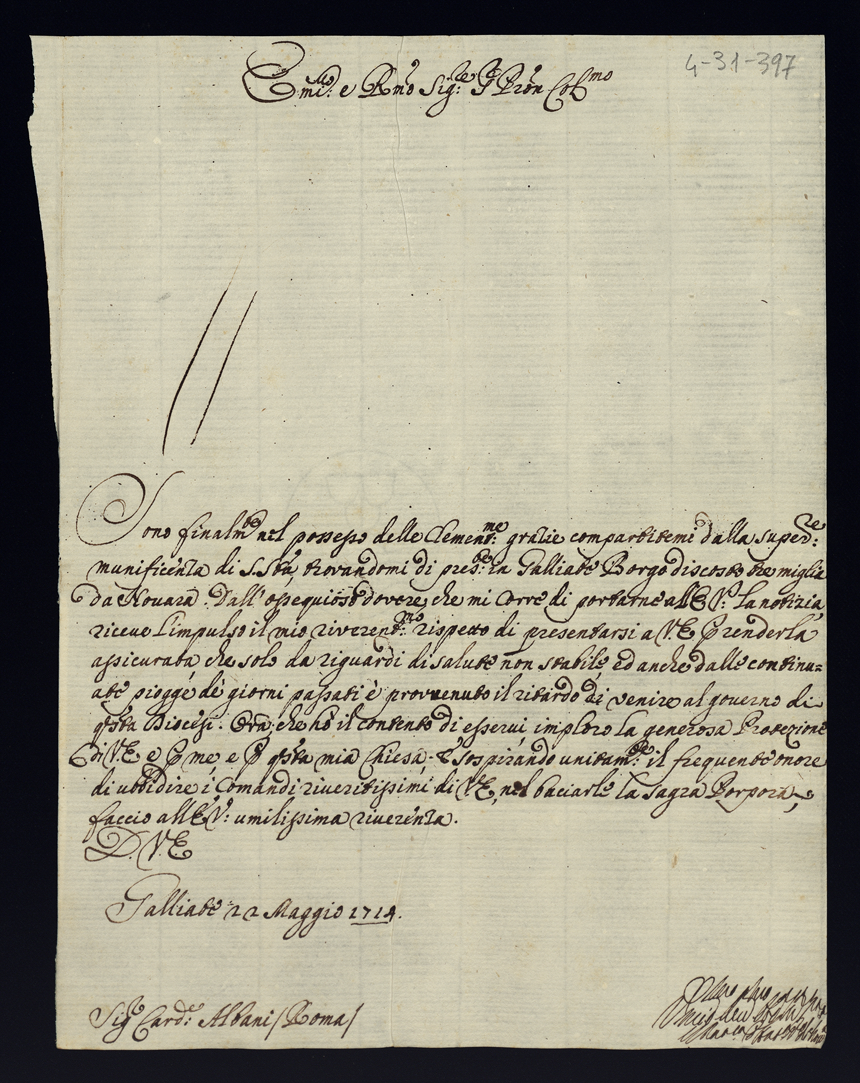 4-31-397
Em.mo e R.mo Sig.re P.ron Col.mo
Sono finalm.te nel possesso delle Clement.me gratie compartitemi dalla super.re
munificenza di S. S.tà, trovandomi di pres.te in Galliate Borgo discosto tre miglia
da Novara. Dall'ossequioso dovere, che mi corre di portarne all'E. V. la notizia,
riceve l'impulso il mio riverent.mo rispetto di presentarsi a V. E. p renderla
assicurata che solo da riguardi di salute non stabile, ed anche dalle continu=
ate piogge de giorni passati è provvenuto il ritardo di venire al governo di
q.sta Diocesi. Ora, che hò il contento di esservi, imploro la generosa Protezione
di V. E. e p me, e p q.sta mia Chiesa. E sospirando unitam.te il frequente onore
di ubbidire i Comandi riveritissimi di V. E., nel baciarle la sagra Porpora,
faccio all'E. V. umilissima riverenza.
D. V. E.
Galliate 22 Maggio 1714.
Sig.r Card.e Albani / Roma /